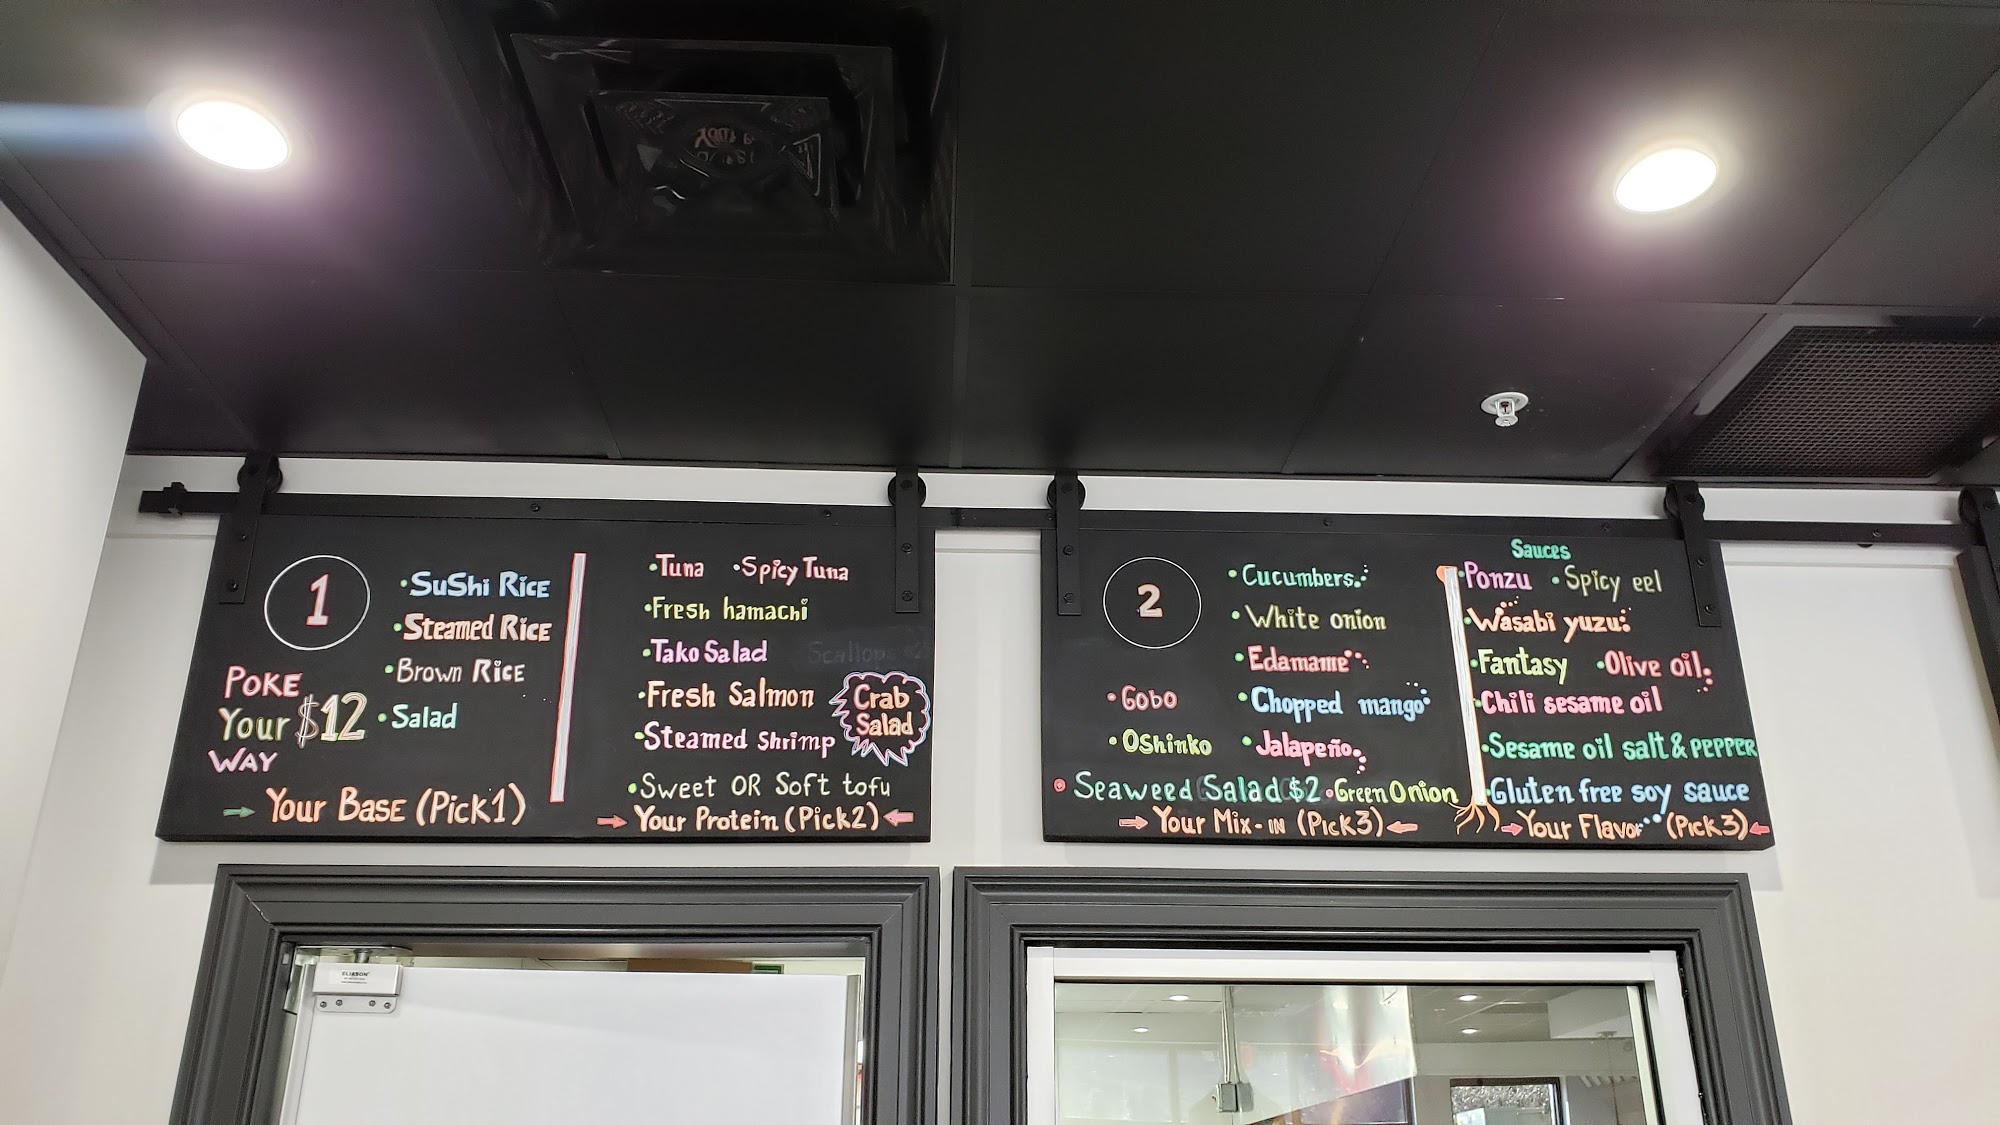 1
POKE
Your $12
WAY
SuShi Rice
Steamed Rice
Brown Rice
Salad
Your Base (Pick1)
Tuna Spicy Tuna
Fresh hamachi
Tako Salad
Scallops $2
Fresh Salmon
Crab
Salad
Steamed Shrimp
Sweet OR Soft tofu
Your Protein (Pick2)
2
Cucumbers
White onion
Edamame
Gobo
Chopped mango
Oshinko
Jalapeño
Seaweed Salad $2 Green Onion
Your Mix-in (Pick3)
Sauces
Ponzu Spicy eel
Wasabi yuzu
Fantasy Olive oil
Chili sesame oil
Sesame oil salt & pepper
Gluten free soy sauce
Your Flavor (Pick3)
ELIASON